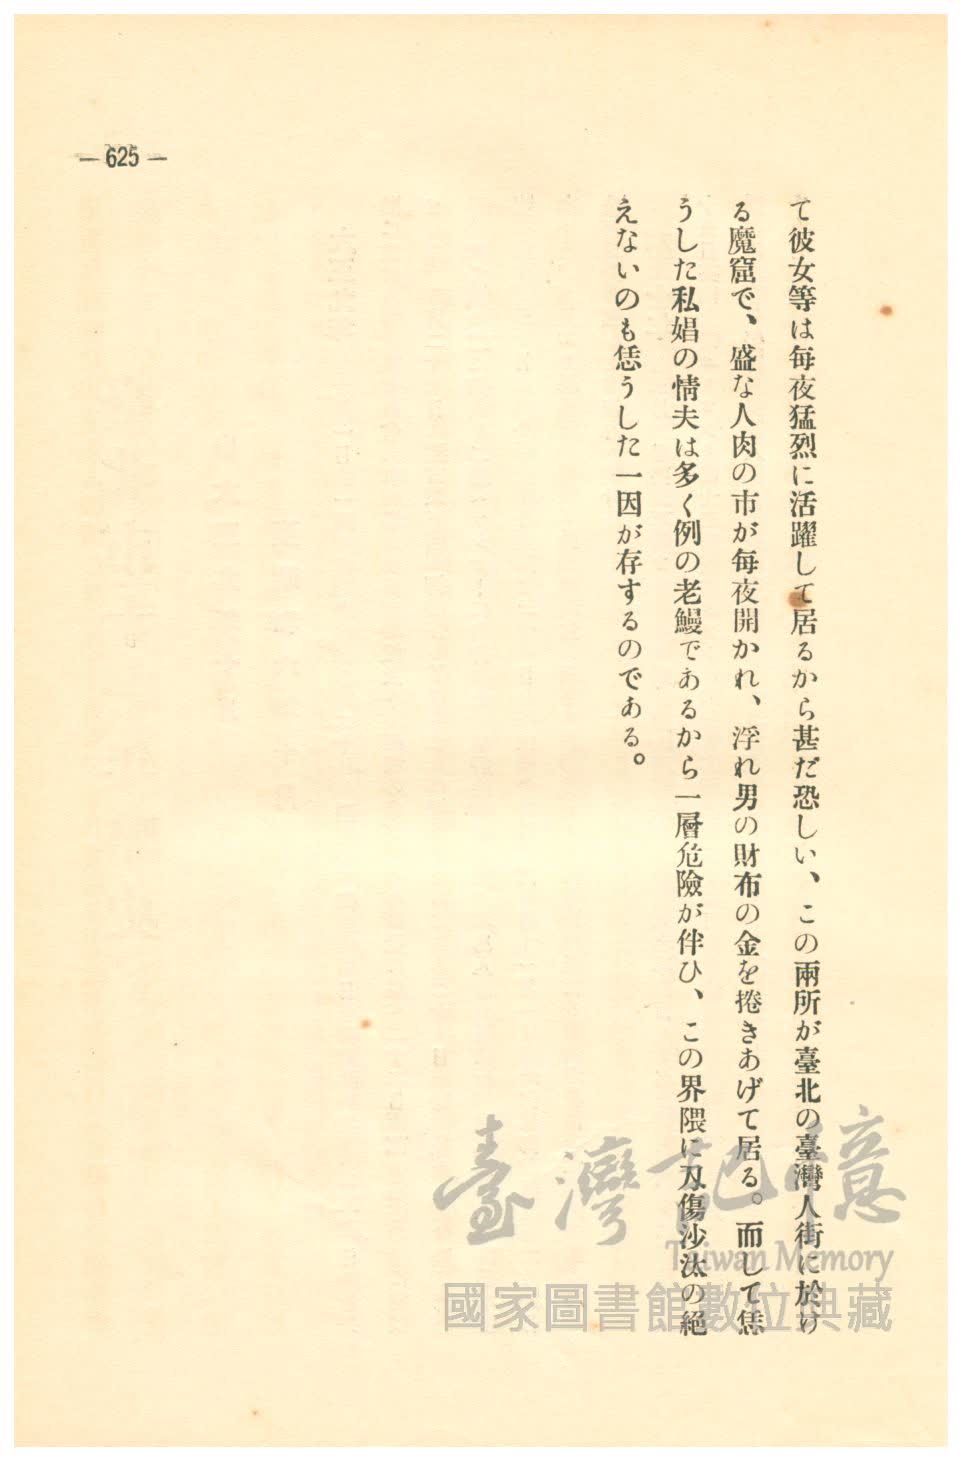 — 625 —
て彼女等は毎夜猛烈に活躍して居るから甚だ恐しい、この兩所が臺北の臺灣人街に於け
る魔窟で、盛な人肉の市が毎夜開かれ、浮れ男の財布の金を捲きあげて居る。而して恁
うした私娼の情夫は多く例の老鰻であるから一層危險が伴ひ、この界隈に刃傷沙汰の絕
えないのも恁うした一因が存するのである。
臺灣記憶
Taiwan Memory
國家圖書館數位典藏